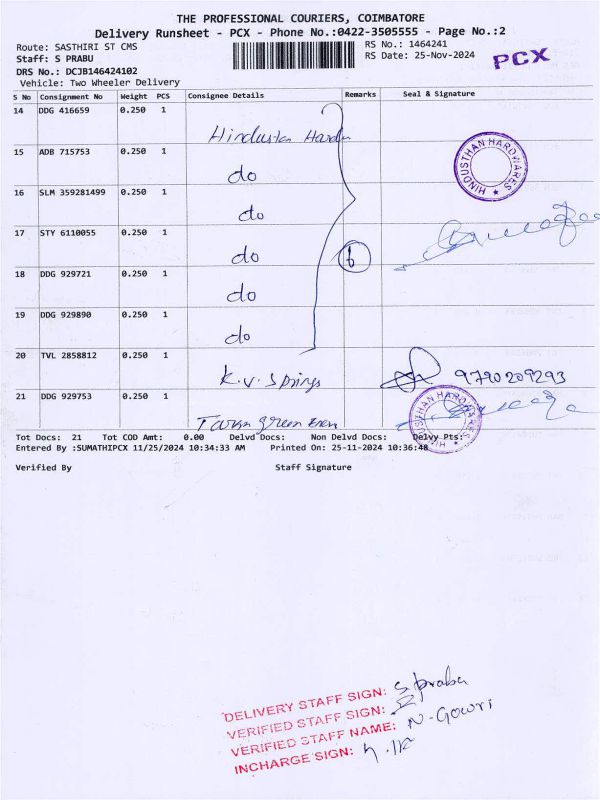 THE PROFESSIONAL COURIERS, COIMBATORE
Delivery Runsheet - PCX - Phone No.:0422-3505555 - Page No.:2
Route: SASTHIRI ST CMS RS No.: 1464241
Staff: S PRABU RS Date: 25-Nov-2024 PCX
DRS No.: DCJB146424102
Vehicle: Two Wheeler Delivery
S No Consignment No Weight PCS Consignee Details Remarks Seal & Signature
14 DDG 416659 0.250 1
Hindustan
HINDUSTHAN HARDWARES
15 ADB 715753 0.250 1
do
16 SLM 359281499 0.250 1
do
17 STY 6110055 0.250 1
do 6
18 DDG 929721 0.250 1
do
19 DDG 929890 0.250 1
do
20 TVL 2858812 0.250 1
K.V. Springs 9790209293
21 DDG 929753 0.250 1
HINDUSTHAN HARDWARES
Tot Docs: 21 Tot COD Amt: 0.00 Delvd Docs: Non Delvd Docs: Delvy Pts:
Entered By :SUMATHIPCX 11/25/2024 10:34:33 AM Printed On: 25-11-2024 10:36:48
Verified By Staff Signature
DELIVERY STAFF SIGN: S. Prabu
VERIFIED STAFF SIGN:
VERIFIED STAFF NAME: N-Gowri
INCHARGE SIGN: